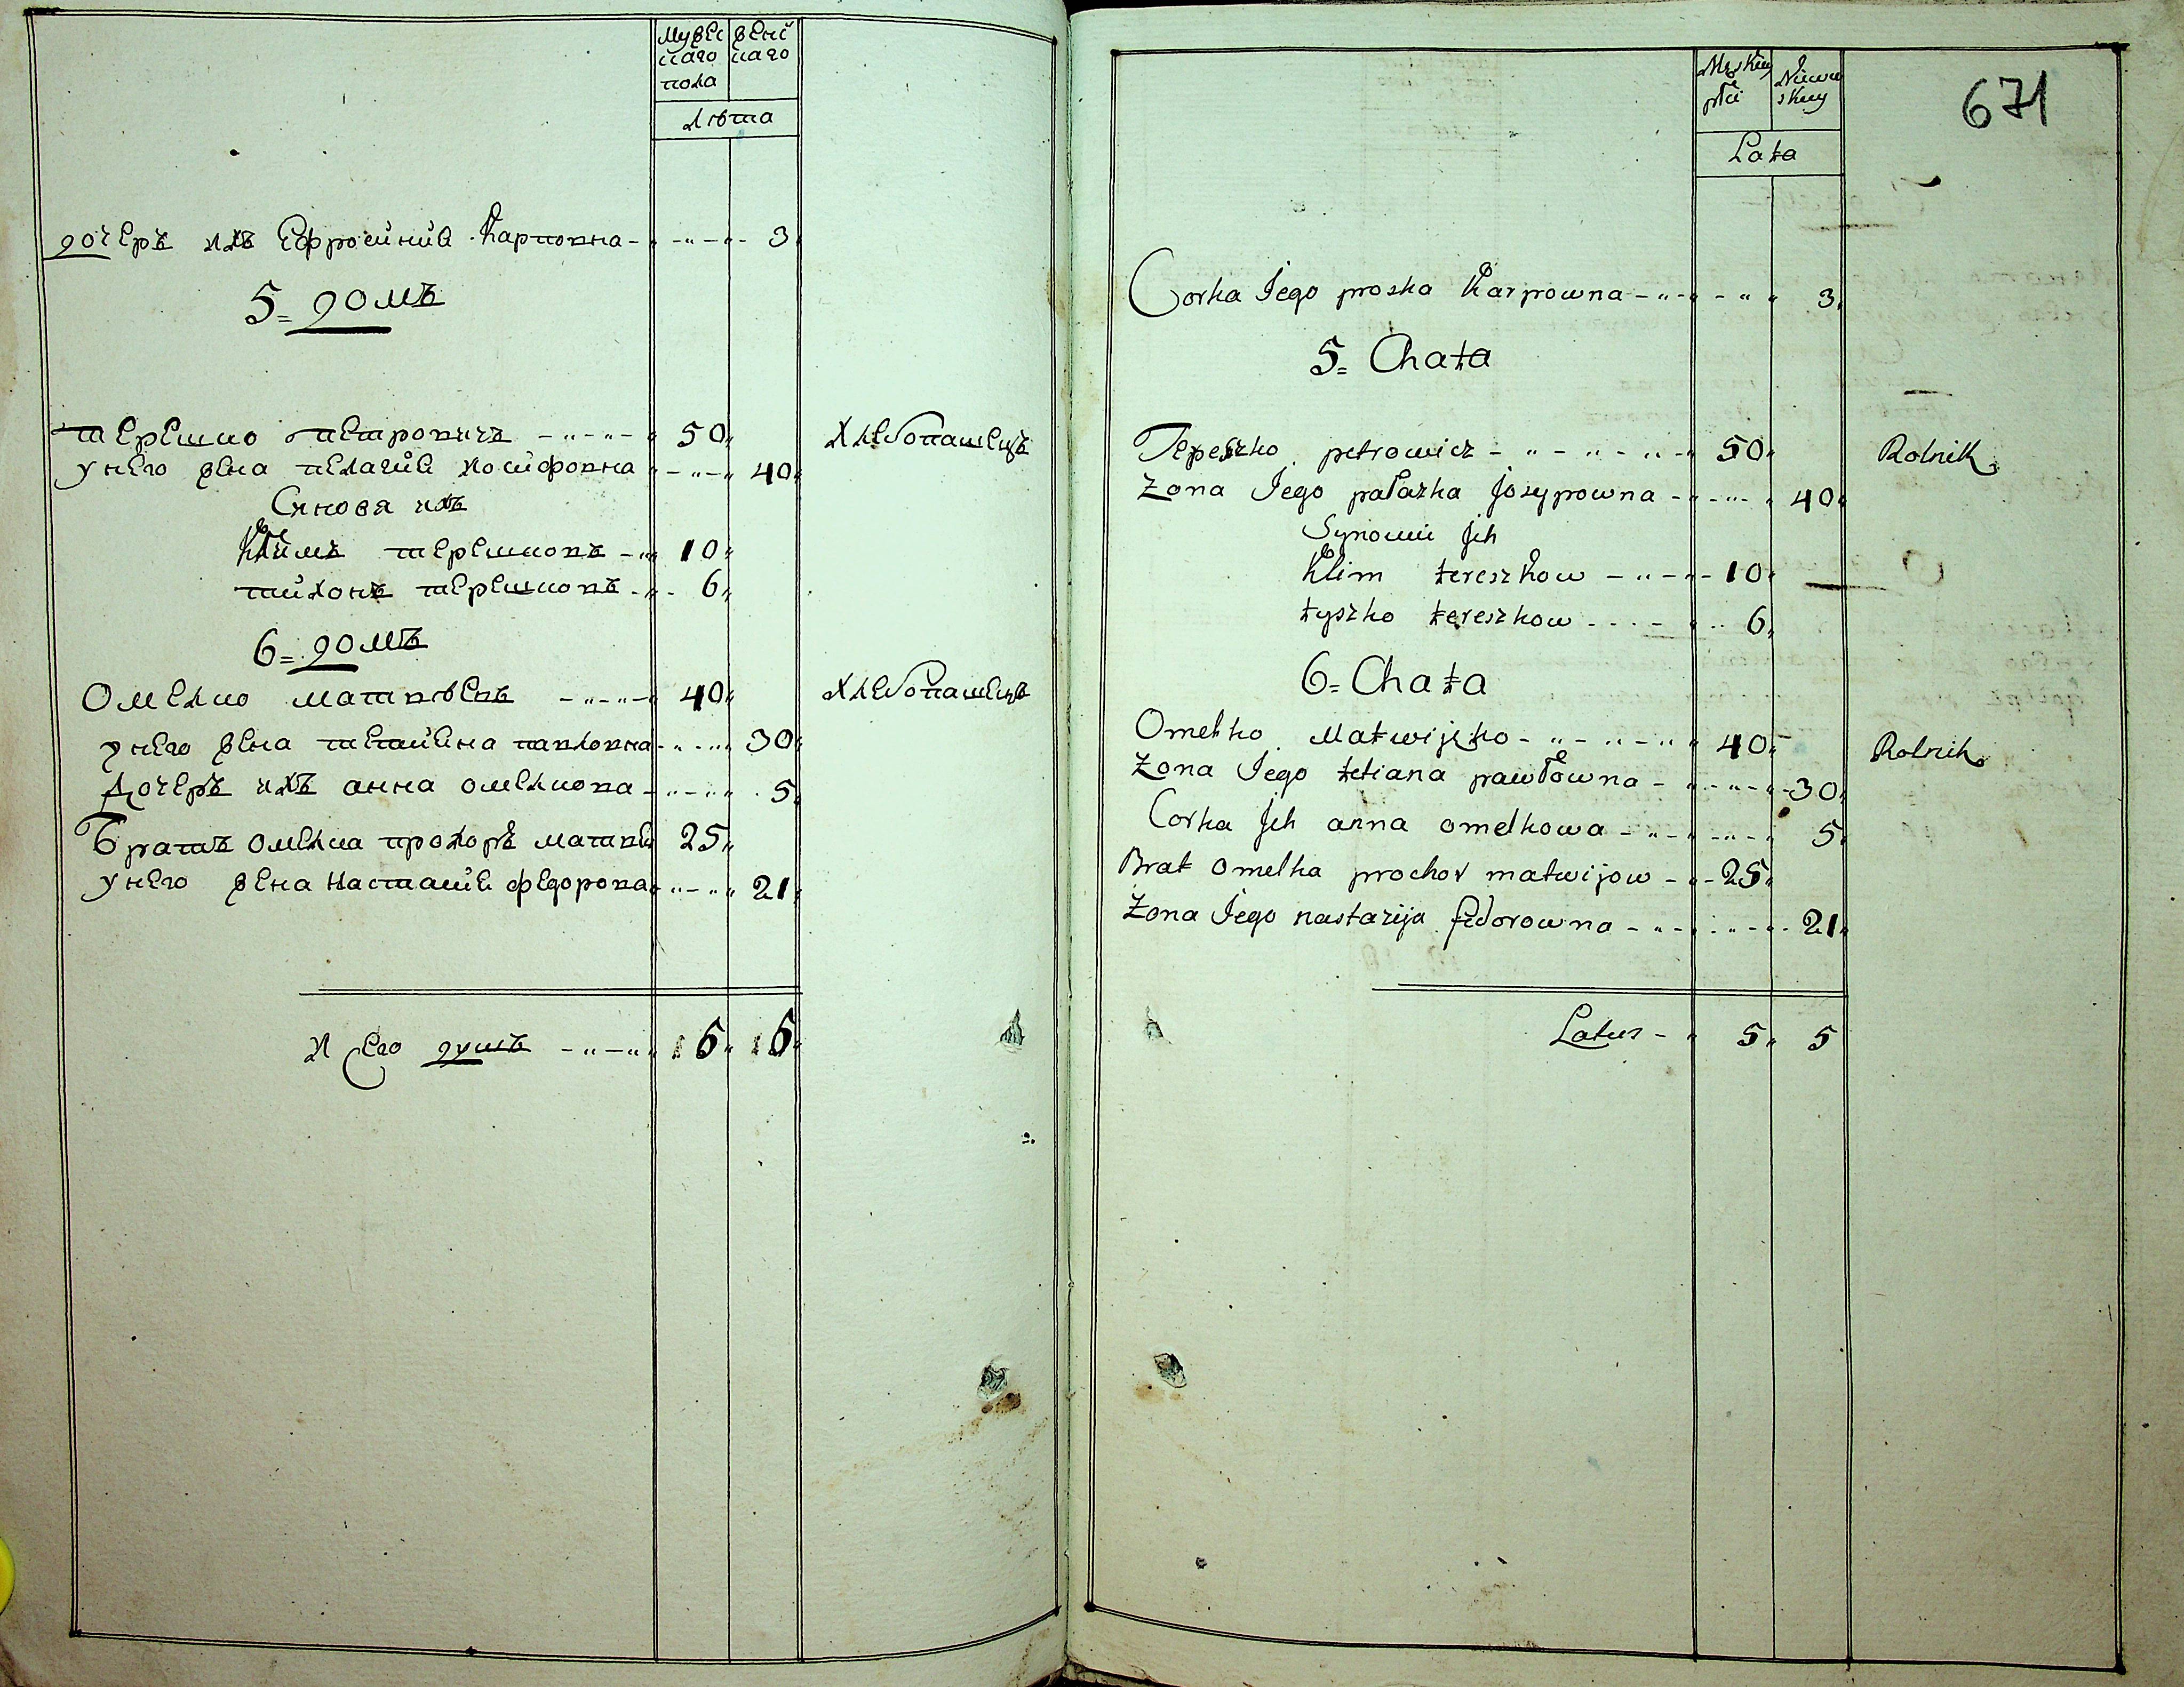 Мужес женс
каго каго
пола
лѣта
дочеръ ихъ Ефросиниа Карповна - 3
5= домъ
терешко петровичъ - 50 Хлебопашецъ
у него жена пелагиа иосифовна - 40
Синовя ихъ
Климъ терешковъ - 10
тихонъ терешковъ - 6
6= домъ
Омелко матвѣевъ - 40 Хлебопашецъ
у него жена тетиана павловна - 30
Дочеръ ихъ анна омелкова - 5
Братъ омелка прохоръ матвеи 25
у него жена Настасиа федорова 21
душъ - 5 5
671
Męzkiey Niewie
płci skiey
Lata
Corka Jego proska Karpowna - 3
5= Chata
Tереszko petrowicz - 50 Rolnik
Zona Jego pałazka Josypowna - 40
Synowie Jch
Klim tereszkow - 10
tyszko tereszkow - 6
6= Chata
Omelko Matwijejko - 40 Rolnik
Zona Jego tetiana pawłowna - 30
Corka Jch anna omelkowa - 5
Brat omelka prochor matwijow - 25
Zona Jego nastazija fedorowna - 21
Latus - 5 5